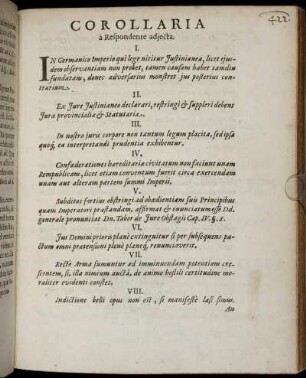 422.
COROLLARIA
à Respondente adjecta.
I.
IN Germanico Imperio qui lege nititur Justinianea, licet ejus-
dem observantiam non probet, tamen causam habet tamdiu
fundatam, donec adversarius monstret jus posterius con-
trarium.
II.
Ex Jure Justinianeo declarari, restringi & suppleri debent
Jura provincialia & Statutaria.
III.
In nostro juris corpore non tantum legum placita, sed ipsa
quoq; ea interpretandi prudentia exhibentur.
IV.
Confœderationes hæreditariæ civitatum non faciunt unam
Rempublicam, licet etiam conventum fuerit circa exercendam
unam aut alteram partem summi Imperii.
V.
Subditos fortius obstringi ad obedientiam suis Principibus
quam Imperatori præstandam, affirmat & enunciatum esse Dd.
generale pronunciat Dn. Tabor de Jure Obstagii Cap. IV. §. 1.
VI.
Jus Domini prioris planè extinguitur si per subsequens pa-
ctum omni prætensioni planè pleneq; renunciaverit.
VII.
Rectè Arma sumuntur ad imminuendam potentiam cre-
scentem, si, illa nimium auctâ, de animo hostili certitudine mo-
raliter evidenti constet.
VIII.
Indictione belli opus non est, si manifestè læsi simus.
An